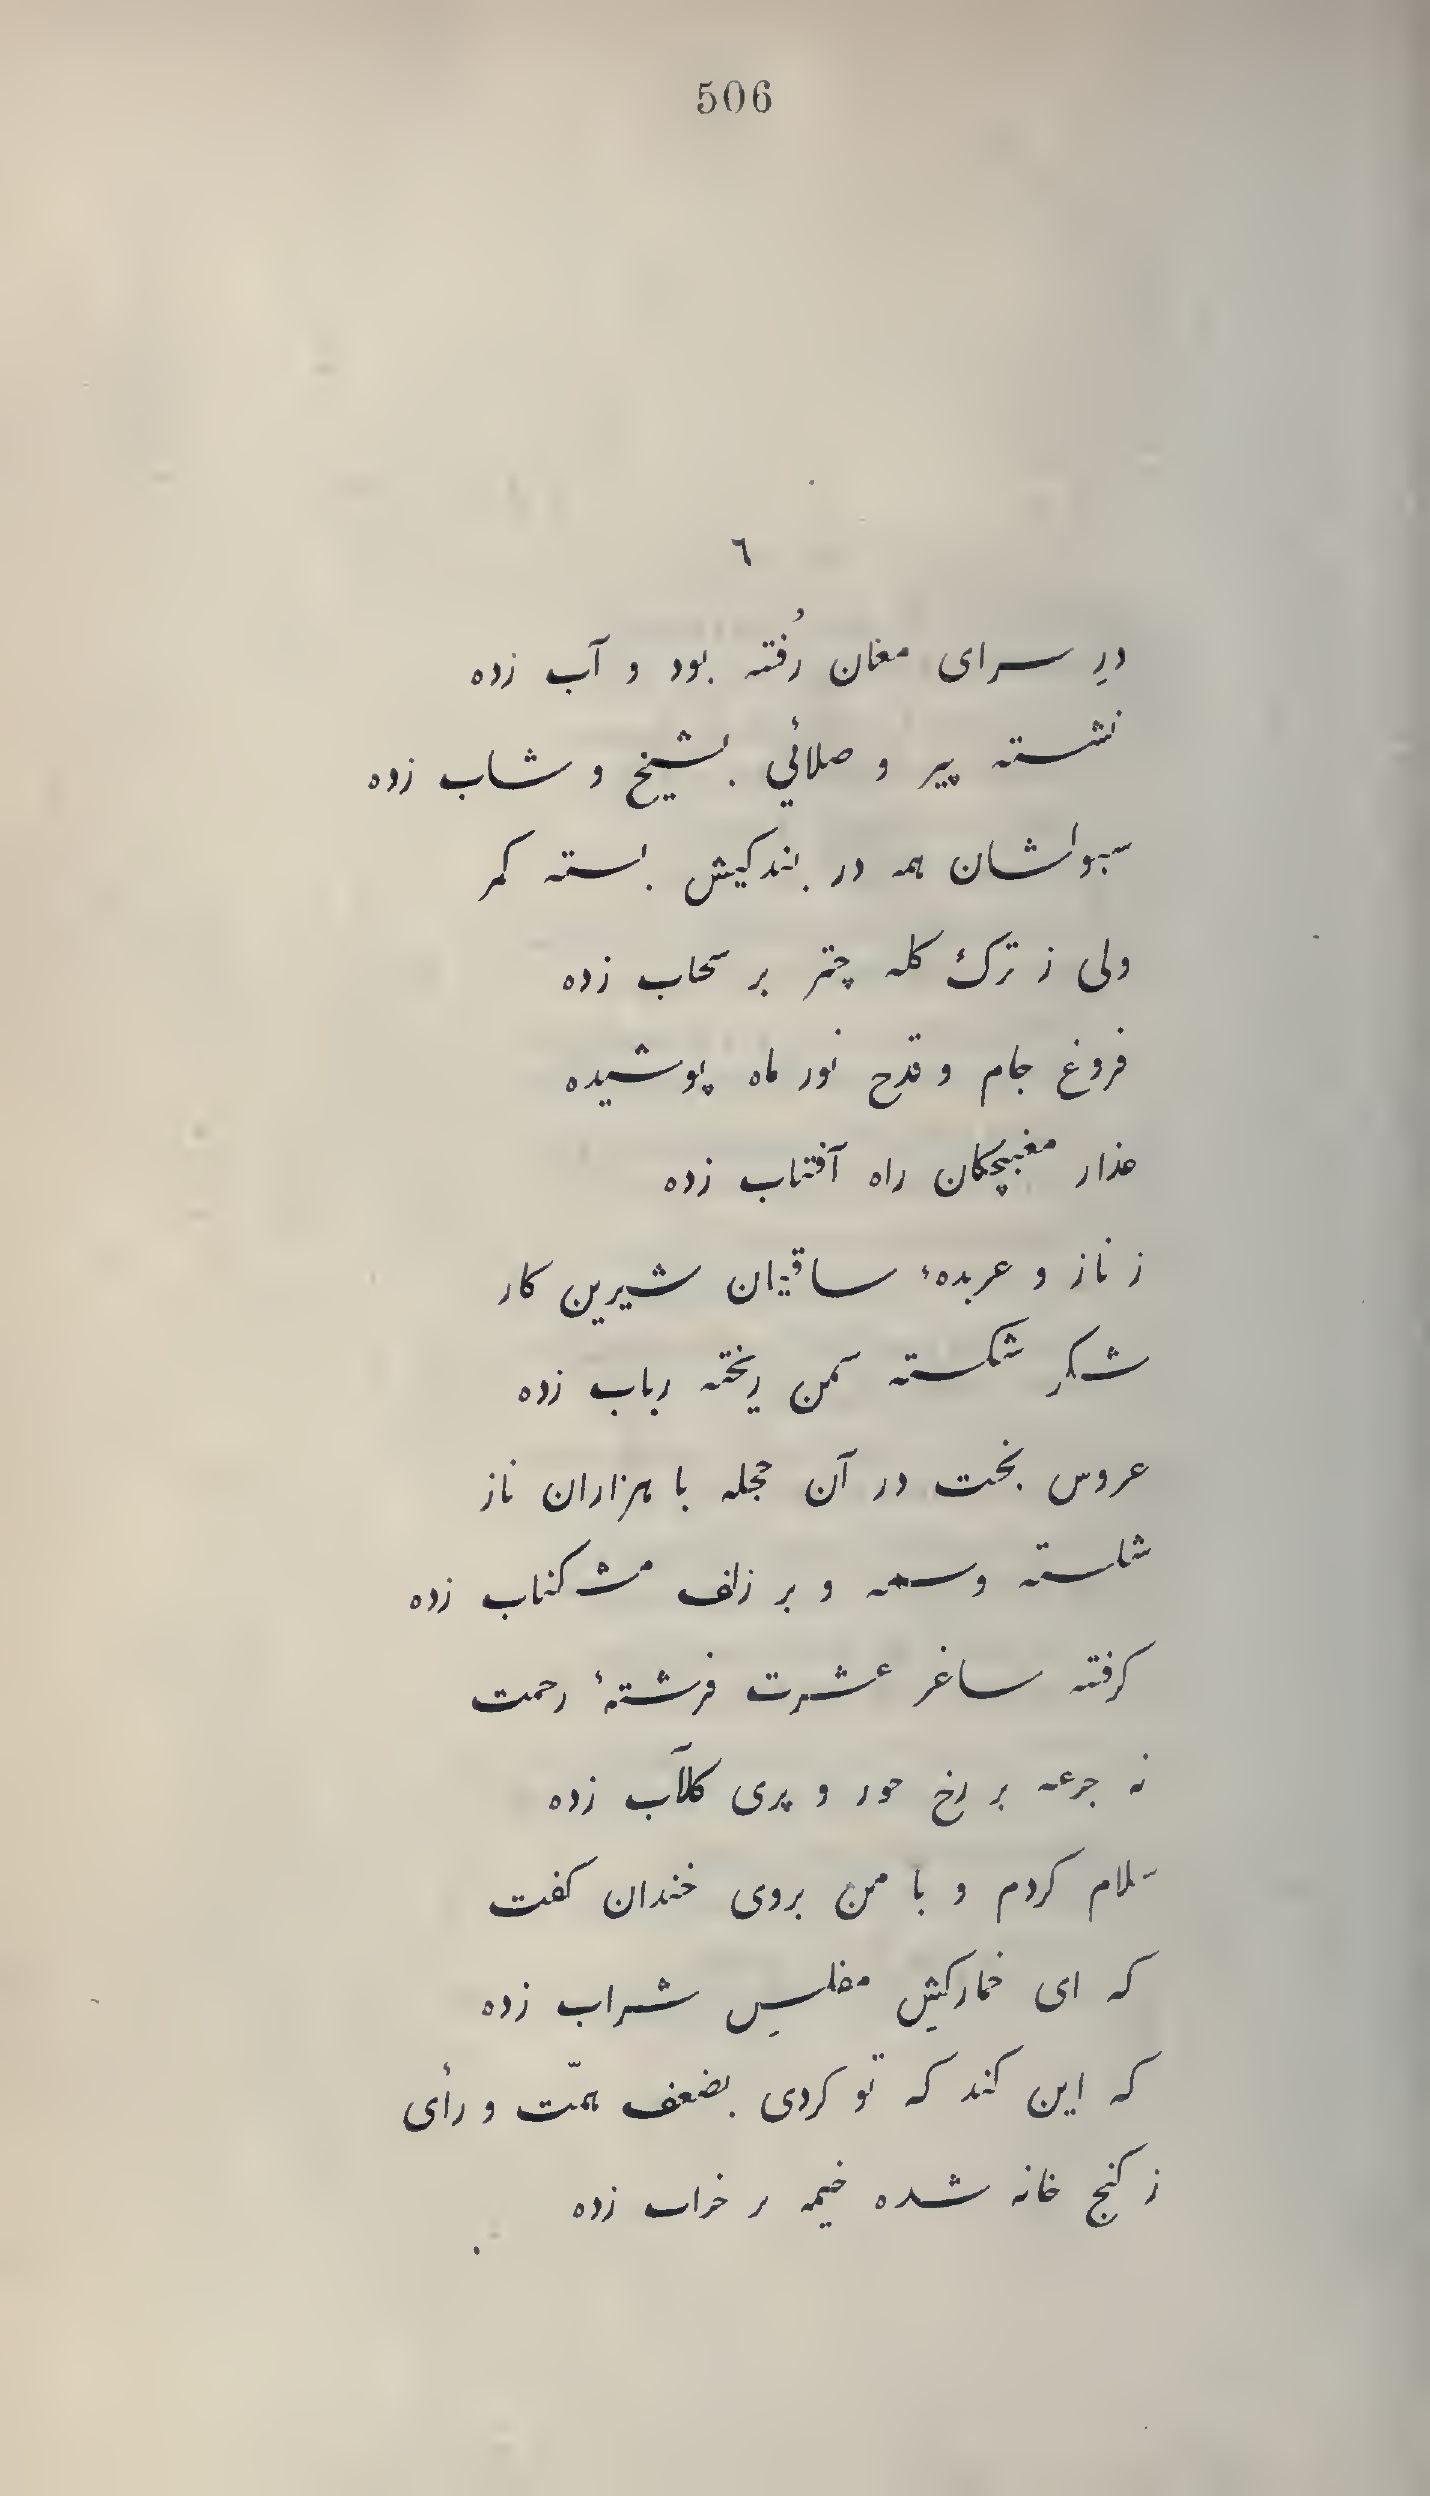 506
٦
درِ سرای مغان رُفته بود و آب زده
نشسته پیر و صلائي بشیخ و شاب زده
سبوکشان همه در بندکیش بسته کمر
ولی ز ترکؑ کله چتر بر سحاب زده
فروغ جام و قدح نور ماه پوشیده
عذار مغبچکان راه آفتاب زده
ز ناز و عربدهٔ ساقیان شیرین کار
شکر شکسته سمن ریخته رباب زده
عروس بخت در آن حجله با هزاران ناز
شکسته وسمه و بر زلف مشکناب زده
کرفته ساغر عشرت فرشتهٔ رحمت
نه جرعه بر رخ حور و پری کلآب زده
سلام کردم و با من بروی خندان کفت
که ای خمارکش مفلس شراب زده
که این کند که تو کردی بضعف همّت و رأی
ز کنج خانه شده خیمه بر خراب زده